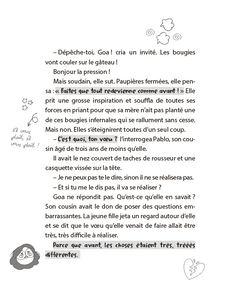 – Dépêche-toi, Goa ! cria un invité. Les bougies
vont couler sur le gâteau !
Bonjour la pression !
Mais soudain, elle sut. Paupières fermées, elle pen-
sa : « faites que tout redevienne comme avant ! » Elle
prit une grosse inspiration et souffla de toutes ses
forces en priant pour que sa mère n'ait pas planté une
de ces bougies infernales qui se rallument sans cesse.
Mais non. Elles s'éteignirent toutes d'un seul coup.
– C'est quoi, ton vœu ? l'interrogea Pablo, son cou-
sin âgé de trois ans de moins qu'elle.
Il avait le nez couvert de taches de rousseur et une
casquette vissée sur la tête.
– Je ne peux pas te le dire, sinon il ne se réalisera pas.
– Et si tu me le dis pas, il va se réaliser ?
Goa ne répondit pas. Qu'est-ce qu'elle en savait ?
Son cousin avait le don de poser des questions em-
barrassantes. La jeune fille jeta un regard autour d'elle
et se dit que le vœu qu'elle venait de faire allait être
très, très difficile à réaliser.
Parce que avant, les choses étaient très, trèèès
différentes.
s'il vous
plaît, s'il
vous plaît !